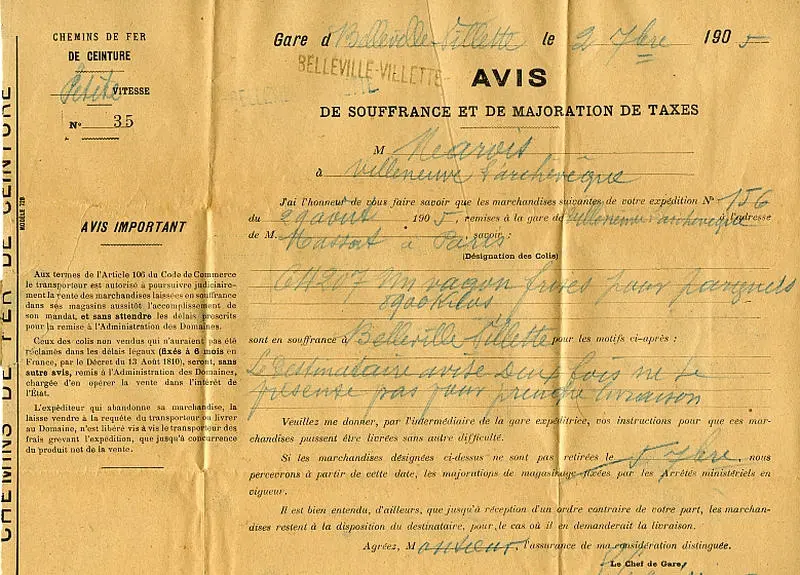 CHEMINS DE FER DE CEINTURE
MODÈLE 72B
CHEMINS DE FER
DE CEINTURE
Petite VITESSE
N° 35
Gare d Belleville-Villette le 2 7bre 1905
BELLEVILLE-VILLETTE
AVIS
DE SOUFFRANCE ET DE MAJORATION DE TAXES
M
à Villeneuve l'archevêque
J'ai l'honneur de vous faire savoir que les marchandises suivantes de votre expédition N° 156
du 29 août 1905, remises à la gare de Villeneuve l'archevêque à l'adresse
de M. Massat à Paris savoir :
(Désignation des Colis)
64207 Un wagon frises pour parquets
8900 Kilos
sont en souffrance à Belleville Villette pour les motifs ci-après :
Le Destinataire avisé Deux fois ne se
présente pas pour prendre livraison
Veuillez me donner, par l'intermédiaire de la gare expéditrice, vos instructions pour que ces mar-
chandises puissent être livrées sans autre difficulté.
Si les marchandises désignées ci-dessus ne sont pas retirées le 5 7bre, nous
percevrons à partir de cette date, les majorations de magasinage fixées par les Arrêtés ministériels en
vigueur.
Il est bien entendu, d'ailleurs, que jusqu'à réception d'un ordre contraire de votre part, les marchan-
dises restent à la disposition du destinataire, pour le cas où il en demanderait la livraison.
Agréez, Monsieur, l'assurance de ma considération distinguée.
Le Chef de Gare,
AVIS IMPORTANT
Aux termes de l'Article 106 du Code de Commerce
le transporteur est autorisé à poursuivre judiciaire-
ment la vente des marchandises laissées en souffrance
dans ses magasins aussitôt l'accomplissement de
son mandat, et sans attendre les délais prescrits
pour la remise à l'Administration des Domaines.
Ceux des colis non vendus qui n'auraient pas été
réclamés dans les délais légaux (fixés à 6 mois en
France, par le Décret du 13 Août 1810), seront, sans
autre avis, remis à l'Administration des Domaines,
chargée d'en opérer la vente dans l'intérêt de
l'État.
L'expéditeur qui abandonne sa marchandise, la
laisse vendre à la requête du transporteur ou livrer
au Domaine, n'est libéré vis à vis le transporteur des
frais grevant l'expédition, que jusqu'à concurrence
du produit net de la vente.